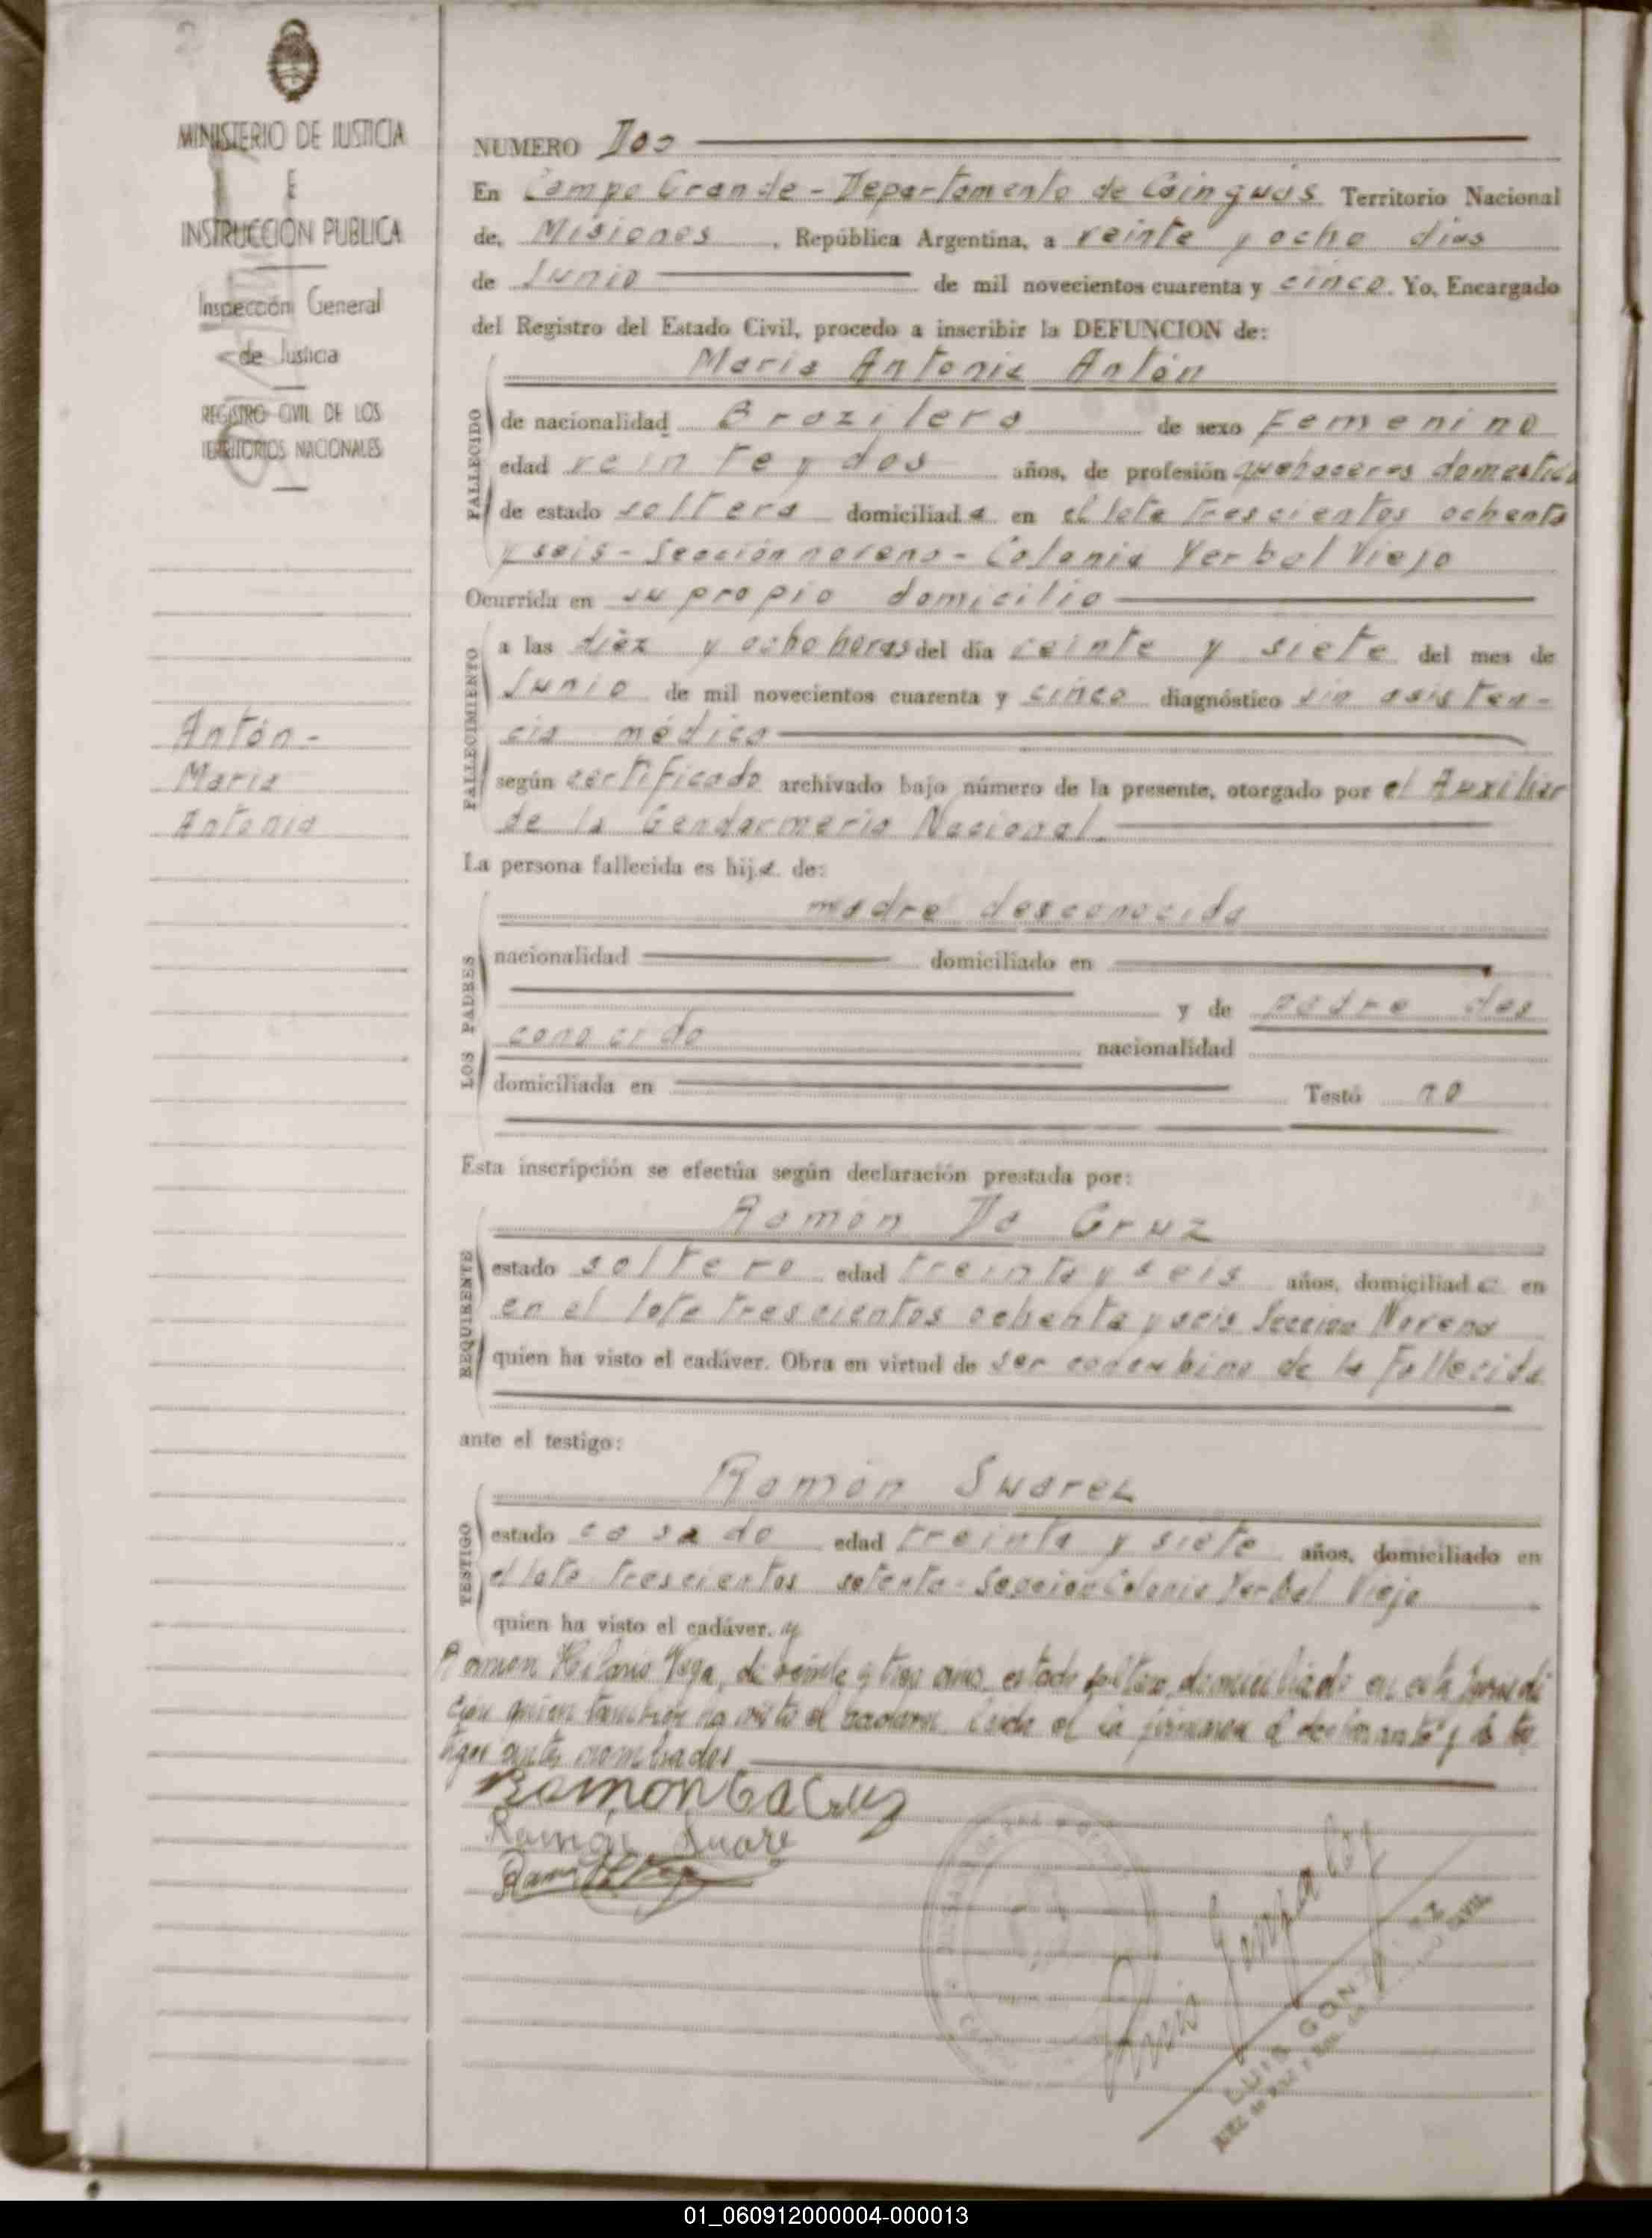 MINISTERIO DE JUSTICIA
E
INSTRUCCION PUBLICA
Inspección General
de Justicia
REGISTRO CIVIL DE LOS
TERRITORIOS NACIONALES
Antón-
Maria
Antonia
NUMERO Dos
En Campo Grande - Departamento de Cainguás Territorio Nacional
de, Misiones, República Argentina, a veinte y ocho dias
de Junio de mil novecientos cuarenta y cinco. Yo, Encargado
del Registro del Estado Civil, procedo a inscribir la DEFUNCION de:
Maria Antonia Antón
FALLECIDO
de nacionalidad Brazilera de sexo Femenino
edad veinte y dos años, de profesión quehaceres domestico
de estado soltera domiciliada en el lote trescientos ochenta
y seis - Sección novena - Colonia Yerbal Viejo
Ocurrida en su propio domicilio
FALLECIMIENTO
a las diez y ocho horas del día veinte y siete del mes de
Junio de mil novecientos cuarenta y cinco diagnóstico sin asisten-
cia médica
según certificado archivado bajo número de la presente, otorgado por el Auxiliar
de la Gendarmeria Nacional
La persona fallecida es hija de:
LOS PADRES
madre desconocida
nacionalidad domiciliado en
y de padre des
conocido nacionalidad
domiciliada en Testó no
Esta inscripción se efectúa según declaración prestada por:
REQUIRENTE
Ramon Da Cruz
estado soltero edad treinta y seis años, domiciliado en
en el lote trescientos ochenta y seis Seccion Novena
quien ha visto el cadáver. Obra en virtud de ser concubino de la Fallecida
ante el testigo:
TESTIGO
Ramón Suarez
estado casado edad treinta y siete años, domiciliado en
el lote trescientos setenta - Seccion Colonia Yerbal Viejo
quien ha visto el cadáver. y
Ramon Hilario Vega, de veinte y tres años, estado soltero, domiciliado en esta jurisdi
cion quien tambien ha visto el cadaver. Leida el la firmaron el declarante y los tes
tigos antes nombrados
Ramon Da Cruz
Ramón Suare
Luis Gonzalez
LUIS GONZALEZ
JUEZ de PAZ
CIVIL
01_060912000004-000013